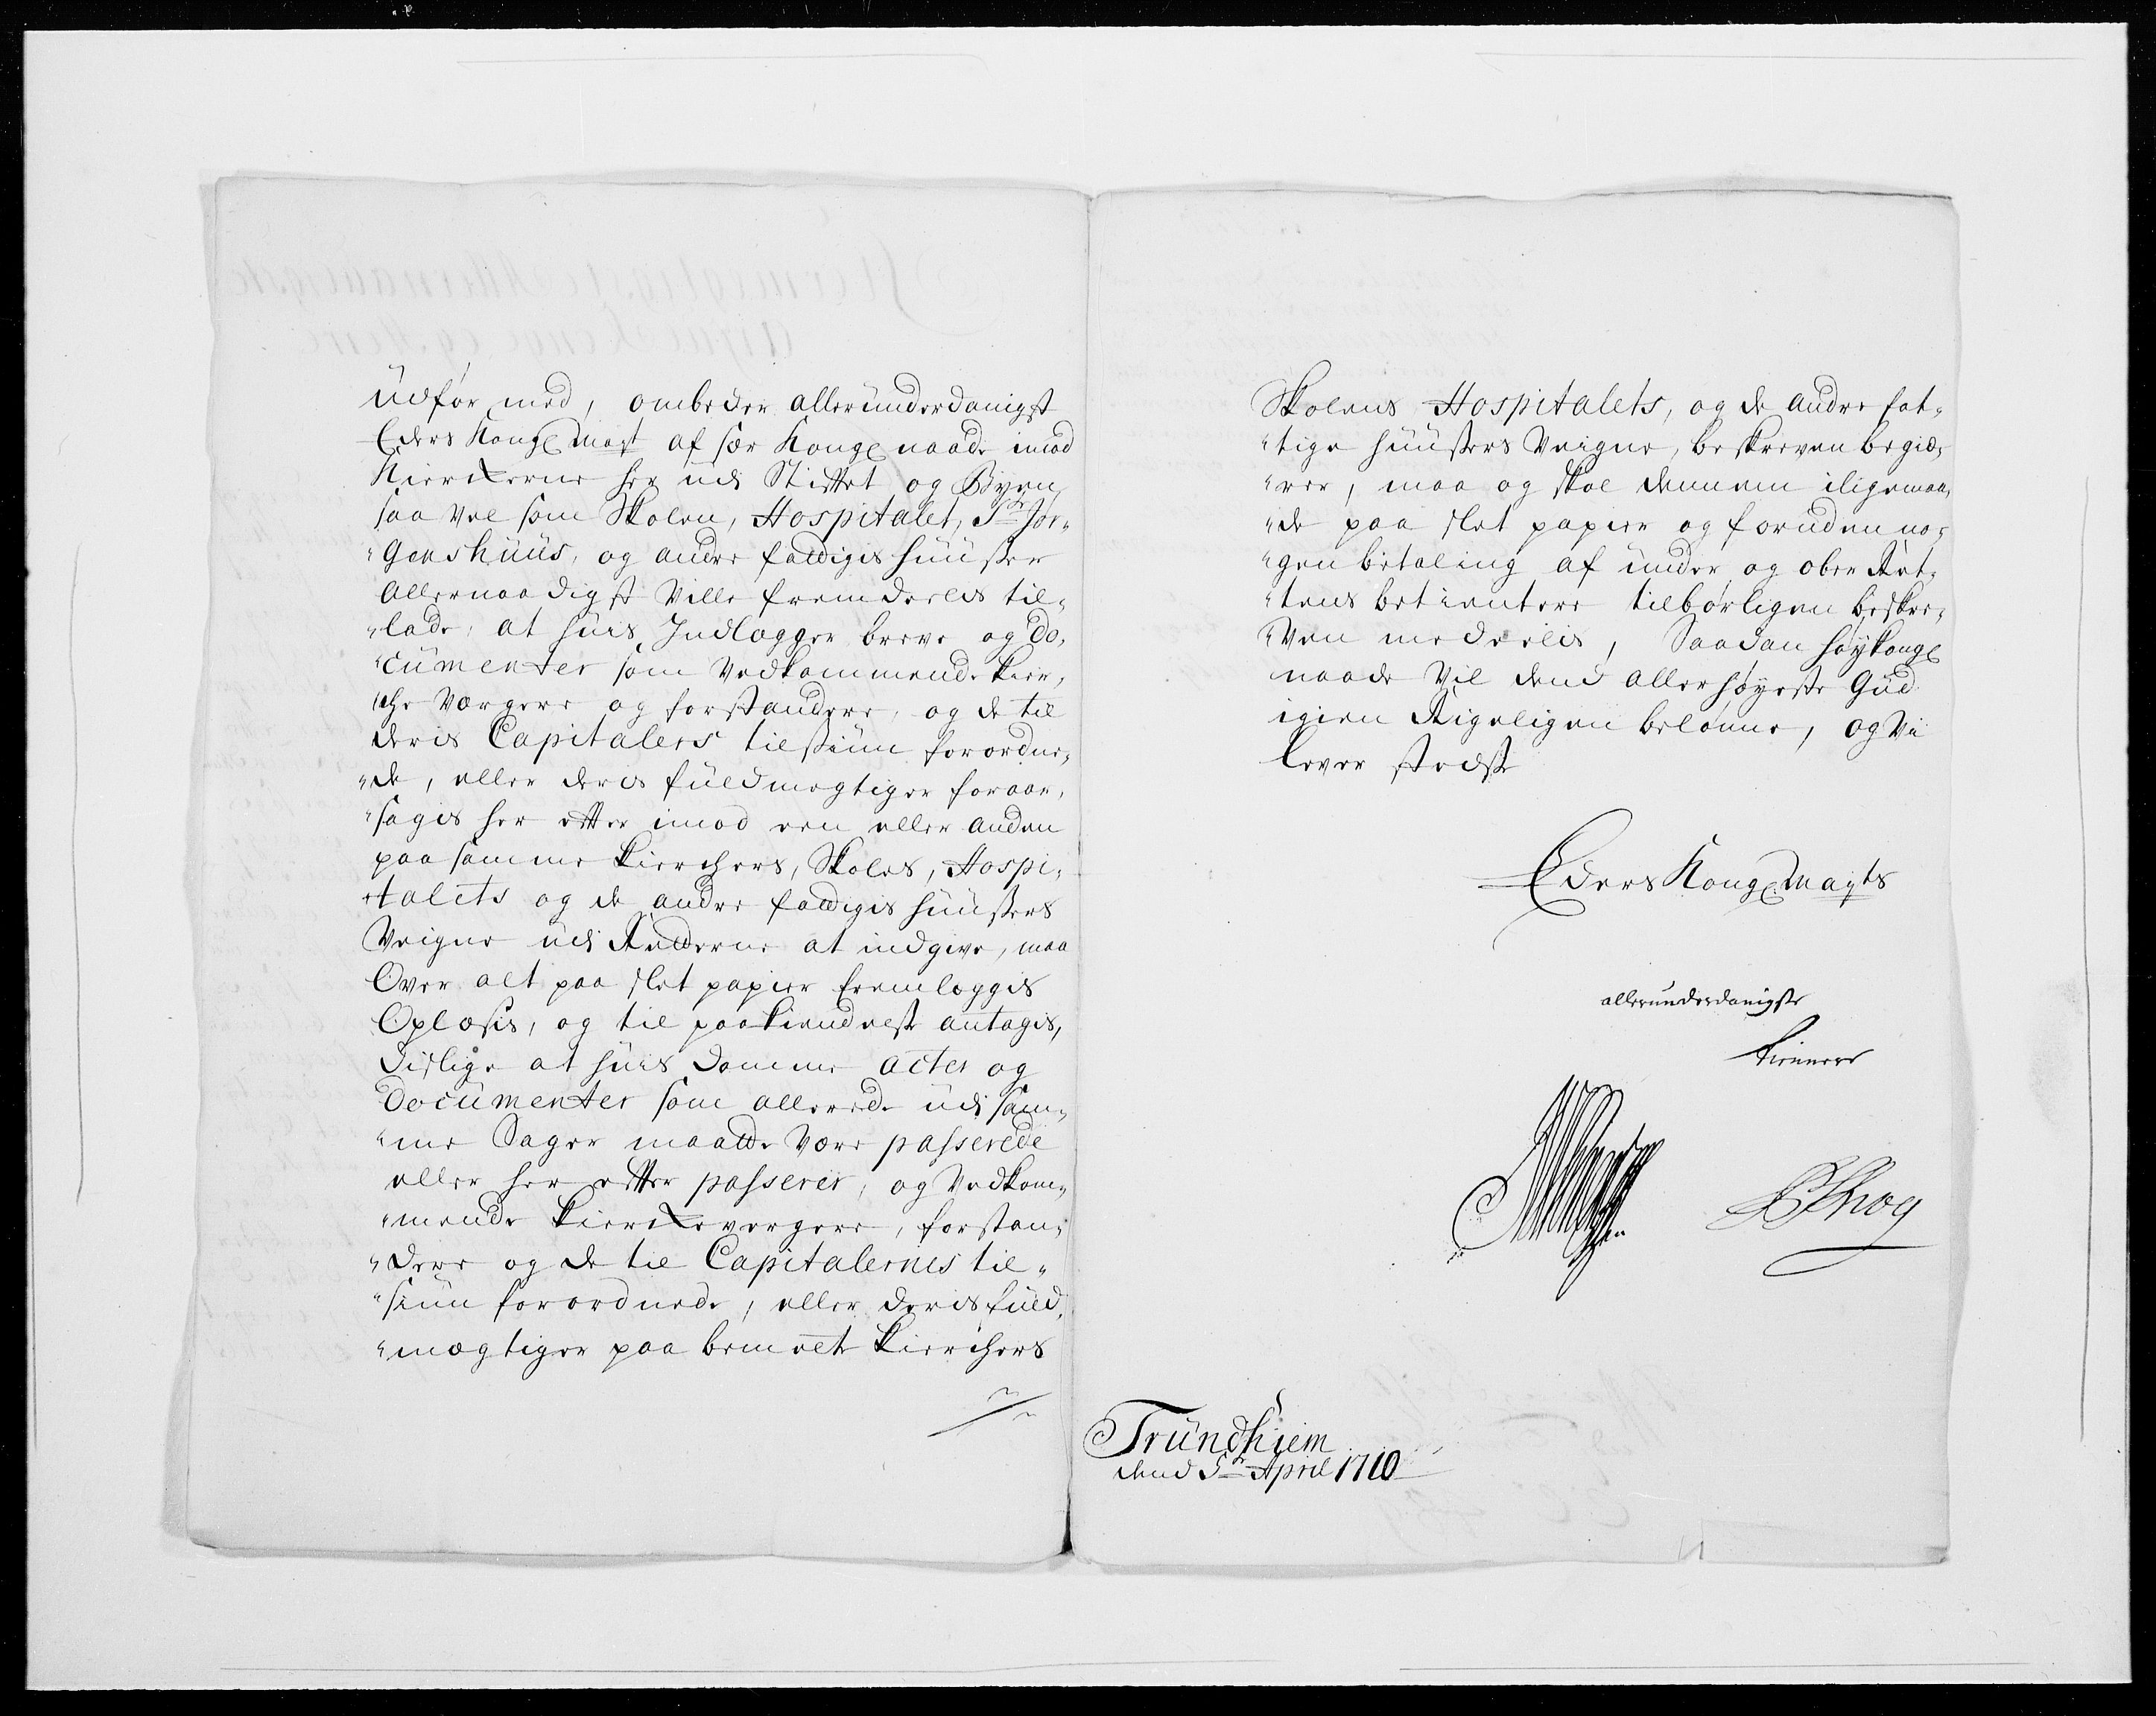 Udfør med, ombeder allerunderdanigst
Eders Kongl Mayt af sær Kongl naade imod
Kierckerne her udi Stiftet og Byen,
saa vel som Skolen, Hospitalet, St Jør-
"genshuus, og andre fattigis huusser
Allernaadigst ville fremdeelis til-
"lade, at huis Indlægger breve og Do-
"cumenter som vedkommende kier-
"che værgere og forstandere, og de til
deris Capitalers tilsiun forordne-
"de, eller deris fuldmægtiger foraar-
"sagis her efter imod een eller anden
paa samme kierchers, Skoles, Hospi-
"talets og de andre fattigis huussers
Veigne udi Retterne at indgive, maa
Over alt paa slet papier fremlæggis
Oplæsis, og til paakiendelse antagis,
Dislige at huis Domme acter og
Documenter som allerede udi sam-
"me Sager maatte være passerede
eller her efter passerer, og vedkom-
"mende kierckeværgere, forstan-
"dere og de til Capitalernes til-
"siun forordnede, eller deris fuld-
"mægtiger paa bemelte kierchers
Skolens Hospitalets, og de andre fat-
"tige huussers Veigne, beskreven begiæ-
"rer, maa og skal dennem iligemaa-
"de paa slet papier og foruden no-
"gen betaling af under og ober Ret-
"tens betientere tilbørligen beskre-
"ven meddeelis, Saadan høykongl
naade vil dend allerhøyeste Gud
igien Rigeligen belønne, og Vi
lever stedse
Eders Kongl Mayts
allerunderdanigste
tienere
Krog
Trundhiem
dend 5te April 1710